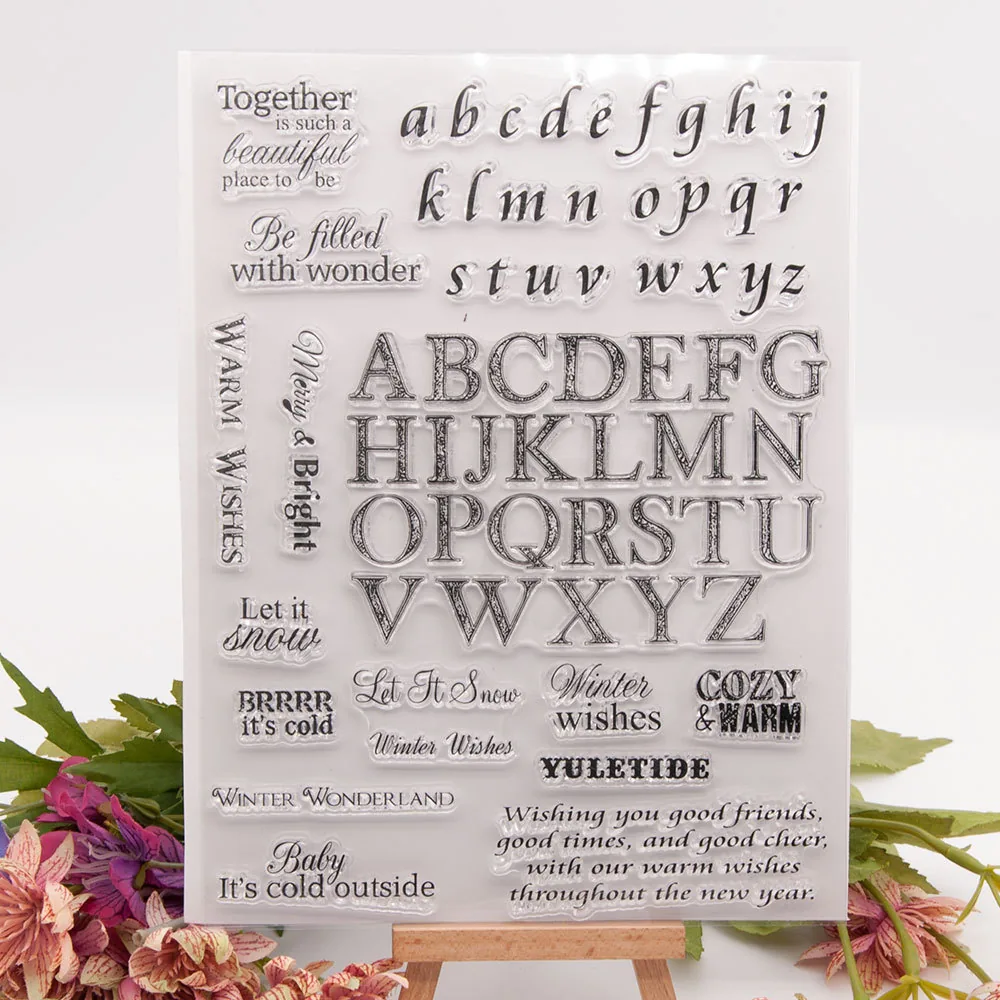 Together
is such a
beautiful
place to be
Be filled
with wonder
a b c d e f g h i j
k l m n o p q r
s t u v w x y z
WARM WISHES
Merry & Bright
ABCDEFG
HIJKLMN
OPQRSTU
VWXYZ
Let it
snow
BRRRR
it's cold
Let It Snow
Winter Wishes
Winter
wishes
COZY
& WARM
YULETIDE
WINTER WONDERLAND
Baby
It's cold outside
Wishing you good friends,
good times, and good cheer,
with our warm wishes
throughout the new year.